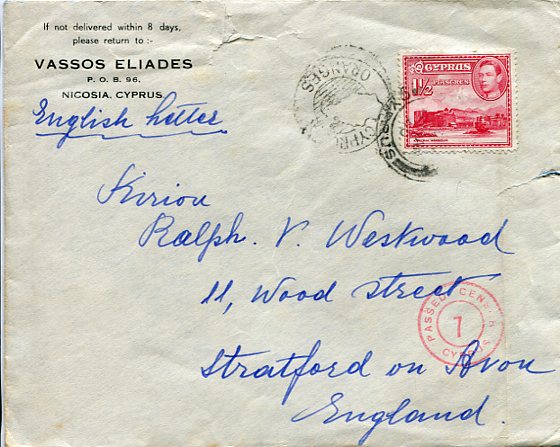 If not delivered within 8 days,
please return to :-
VASSOS ELIADES
P. O. B. 96.
NICOSIA, CYPRUS
English Letter
CYPRUS
1½ PIASTRES
ORANGES
CYPRUS
Kirion
Ralph. V. Westwood
11, Wood street
Stratford on Avon
England.
PASSED CENSOR
7
CYPRUS